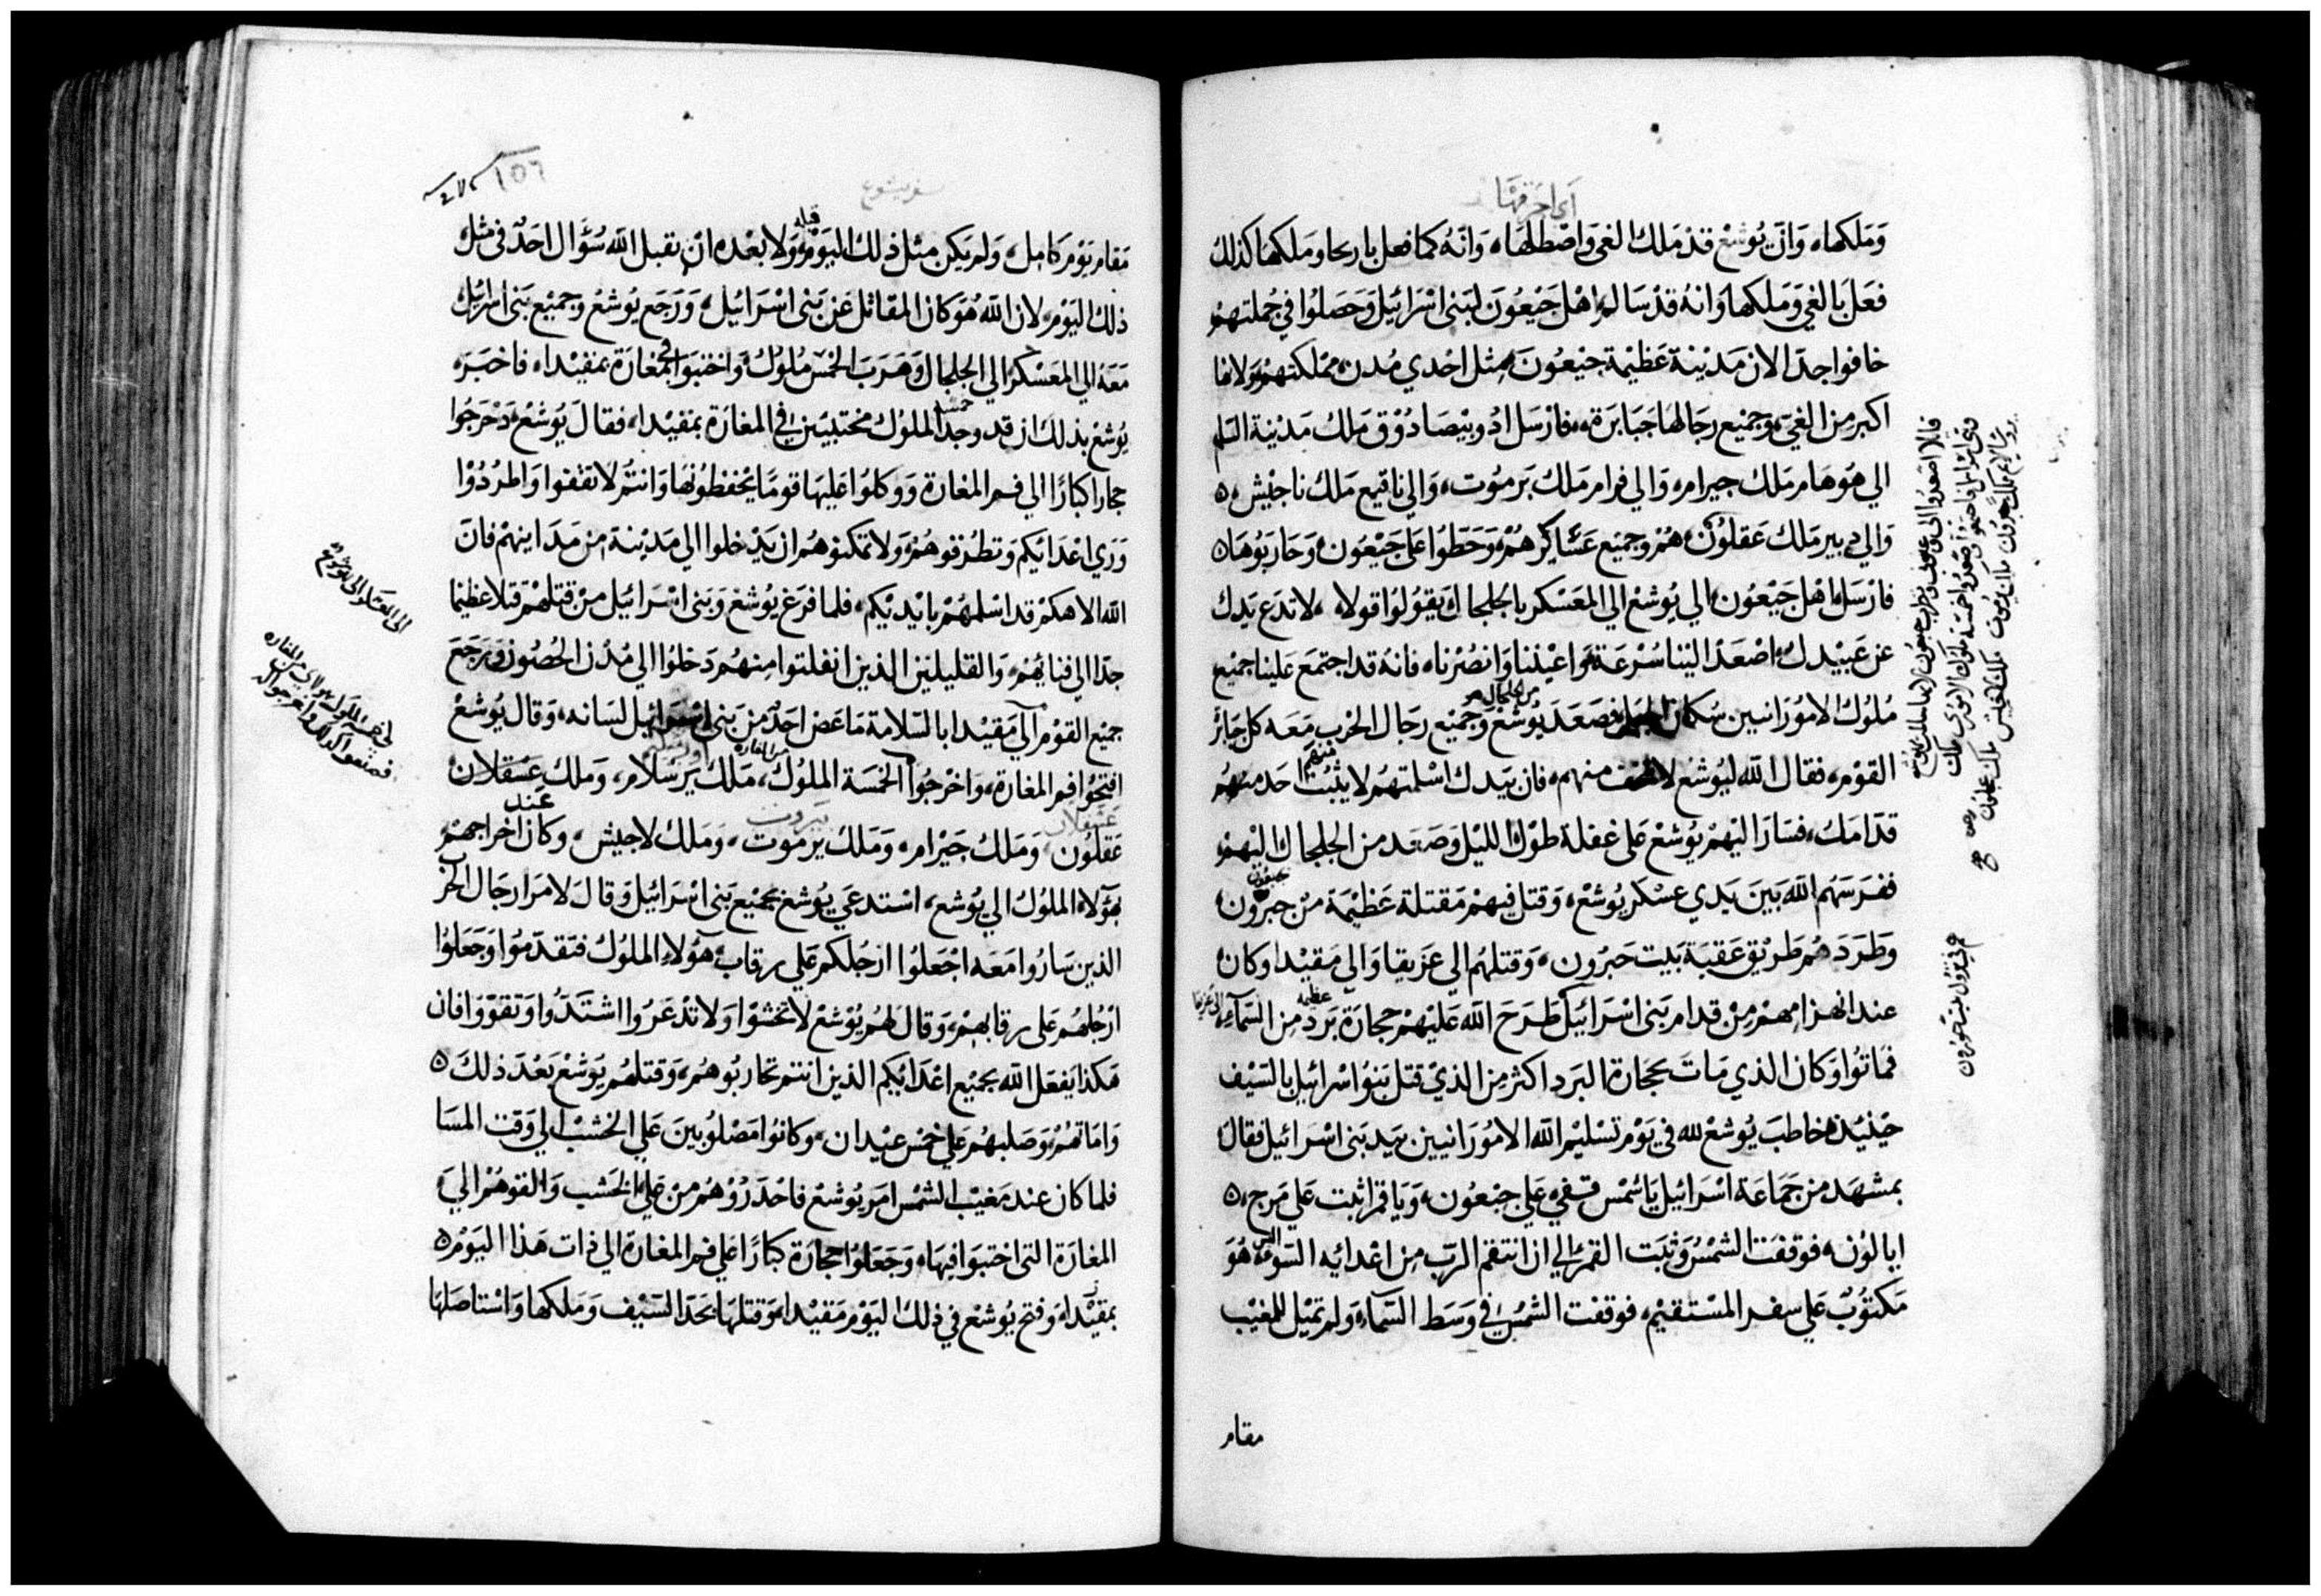 اي احرقها
وَمَلكها، وَانّ يُوشع قدْ مَلك الغي وَاصْطلهَا، وَانهُ كما فعل باريحا ومَلكهَا كذلك
فعَل بالغي وَمَلكها وَانهُ قدْ سَالم اهْل جَبْعُونَ لبَني اسْرَائيل وَحَصَلوُا في جُملتهمْ
خافوا جدّا لان مَديْنة عَظيْمة جبْعُونَ، مثل احْدي مُدن ممْلكتهمْ ولانها
اكبر من الغي، وجميْع رجَالهَا جَبَابرَة، فارْسَل ادُوبيْصَادُوْق مَلك مَديْنة السّلم
الي هوهَام مَلك جيرام، وَالي فرام مَلك يَرموُت، وَالي ناقيع مَلك ناجيْش ه
وَالي دبير مَلك عَقلوُن، همُ وجميْع عَسَاكرهمُ، وَحَطوا عَلي جَبْعُون، وَحَاربُوهَا ه
فارْسَل اهْل جَبْعُون، الي يُوشعْ الي المعَسْكر بالجلجال يَقوُلوُا قولا، لا تدَع يَدك
عَن عَبيْدك، اصْعَدْ اليْنا سُرْعَة، وَاعْيننا وَانصُرْنا، فانهُ قد اجتمَع عَلينا جميْع
مُلوُك الامُورَانيين سُكان الجبل، فصَعَدَ يُوشعْ من الجلجال هو وَجميْع رجَال الحَرْب مَعَه كل جَبَابر
القوْم، فقال اللّه ليُوشع لا تخف منهم، فان بيَدك اسْلمتهُم لا يثبُت احَد منهُم
قدّامَك، فسَارَ اليْهمْ يُوشعْ عَلي غفلة طوْل الليْل وَصَعَد من الجلجال اليْهمْ
ففرّسَهُم اللّه بَينَ يَدي عسْكر يُوشعْ، وَقتل فيهمْ مَقتلة عَظيْمَة منْ جبرُون جبعون
وَطرَدَهُم طَريْق عَقبَة بَيت حَبرُون، وَقتلهُم الي عَزيقا وَالي مَقيْدا وَكان
عند انهزامهمْ منْ قدام بَني اسْرَائيل طَرَحَ اللّه عَليْهمْ حجَارَة بَرَد عظيمه منَ السّمَاء الي عزيقا
فمَاتُوا وَكان الذي مَاتَ بحجَارة البَرد اكثر من الذيْ قتل بَنوُا سْرائيل بالسّيْف
حيْنيْذ خاطبَ يُوشعْ للّه في يَوْم تسْليْم اللّه الامُورَانيين بيَد بَني اسْرَائيل فقال
بمشهَد من جَمَاعَة اسْرَائيل يَا شمْس قفي عَلي جبْعُون، وَيَا قمر اثبت عَلي مَرج ه
ايالوُن، فوقفت الشمْسُ وَثبَت القمرُ الي ان انتقم الربّ من اعْدائه السّوء، التي هُوَ
مَكتوُبٌ عَلي سفر المسْتقيْم، فوقفت الشمْسُ في وَسَط السّمَاء وَلم تميْل للمغيْب
مقام
سفر يشوع
١٥٦
مَقام يَوْم كامل، وَلم يَكن مثل ذلك اليَوْم قبله وَلا بعْده انْ يقبل اللّه سُؤَال احَدٌ في مثل
ذلك اليَوْم، لان اللّه هُوَ كان المقاتل عَنْ بَني اسْرَائيل، وَرَجَع يُوشعُ وجميْع بَني اسرائيل
مَعَهُ الي المعَسْكر الي الجلجال وَهَرَبَ الخمْس مُلوُك وَاختبَوا في مغارَة بمَقيْدا، فاخبَرَه
يُوشعْ بذلك ان قد وجد خمسة الملوُك مختبيَين في المغارَة بمَقيْدا، فقال يُوشعْ دَحْرجُوا
حجاراً كبارًا الي فم المغارَة وَوَكلوُا عَليهَا قومًا يَحْفظوُنهَا وَانتمُ لا تقفوا وَاطرُدُوْا
وَرَي اعْدائكم وَتطرُقوهُمْ، وَلا تمكنوهُم ان يَدْخلوا الي مَديْنة منْ مَدَاينهمْ فانّ
اللّه الاهكمْ قد اسْلمهُمْ بايْديْكم، فلما فرَغ يُوشعْ وَبَني اسْرَائيل منْ قتلهمْ قتلا عظيْما
جدّا الي فنايهُمْ، وَالقليليَن الذين انفلتوا منهُم دَخلوُا الي مُدُن الحُصُون وَرَجَعَ
جميْع القوْم الي مَقيْدا بالسّلامَة مَا عَضّ احَدٌ منْ بَني اسْرَائيل لسَانه، وَقال يُوشعْ
افتحُوا فم المغارَة، وَاخْرجُوا الي الخمْسَة الملوُك من المغاره، مَلك يَرسْلام، وَملك عَسْقلان
عَقلوُن، وَمَلك جَيْرام، وَمَلك يَرموت، وَمَلك لاجيش، وَكان عند اخْراجهمْ
بهؤلاء الملوُك الي يُوشع، اسْتدعَي يُوشعْ بجميْع بَني اسْرَائيل وَقال لامَرَا رجَال الحَرب
الذين سَارُوا مَعَه اجْعَلوُا ارْجُلكم عَلي رقاب هؤلاء الملوُك فتقدّموُا وَجَعَلوُا
ارْجُلهُم عَلي رقابهمْ، وَقال لهُم يُوشعْ لا تخشوْا وَلا تذعَرُوا اشتدّوا وَتقوّوا فان
هَكذا يَفعَل اللّه بجميْع اعْدَائكم الذين انتم تحاربُوهُم، وَقتلهُم يُوشعْ بَعْدَ ذلكَ ه
وَامَاتهُمْ وَصَلبهُم عَلي خمْس عيْدان، وَكانوُا مَصْلوُبينَ عَلي الخشب الي وَقت المسَا
فلما كان عند مَغيْب الشمْس امَر يُوشعْ فاحْدَرُوْهُم منْ عَلي الخشب وَالقوهُمْ الي
المغارَة التي اختبوَا فيهَا، وَجَعَلوُا حجَارَة كبارًا عَلي فم المغارَة الي ذات هَذا اليَوْم ه
بمقيْدا، وَفتح يُوشعْ في ذلك اليَوْم مَقيْدا، وَقتلهَا بحَدّ السّيْف وَمَلكها وَاسْتاصَلهَا